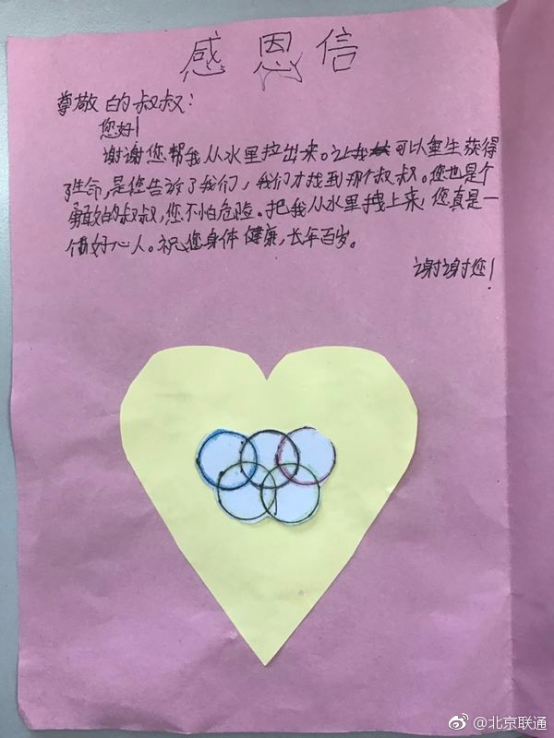 感恩信
尊敬的叔叔:
您好!
谢谢您帮我从水里拉出来。让我可以重生获得
了生命,是您告诉了我们,我们才找到那个叔叔。您也是个
勇敢的叔叔,您不怕危险。把我从水里拽上来,您真是一
個好心人。祝您身体健康,长年百岁。
谢谢您!
@北京联通